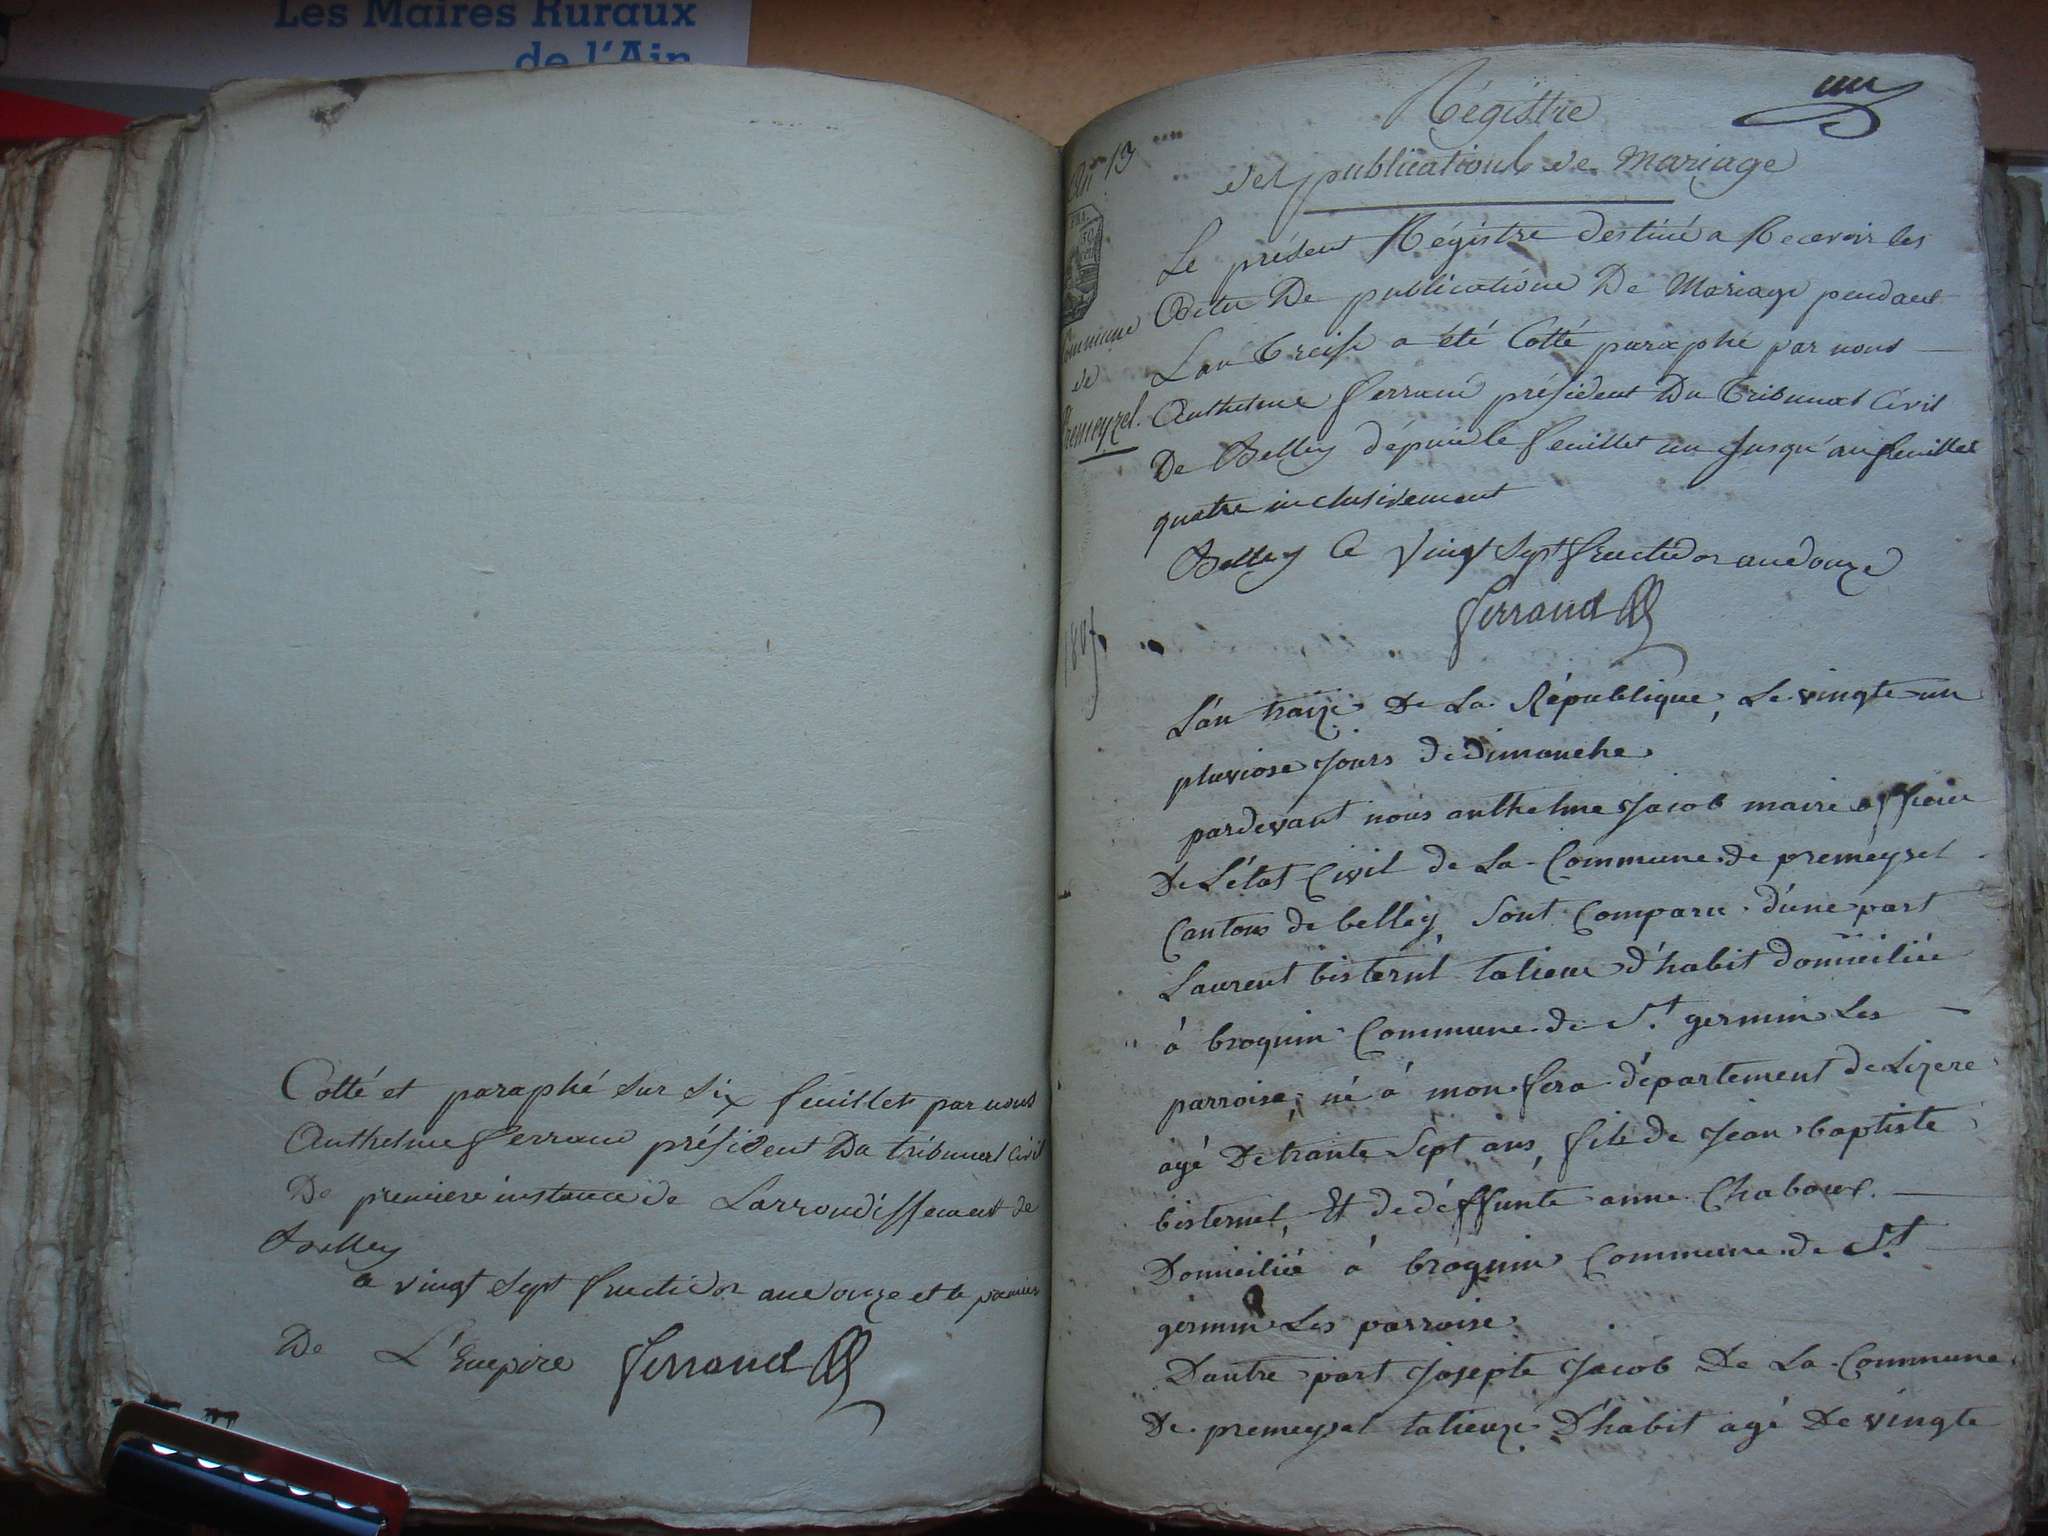 Les Maires Ruraux
de l'Ain
Cotté et paraphé sur six feuillets par nous
Anthelme ferrand président Du tribunal Civil
De premiere instance de Larrondissement de
Belley
a vingt sept fructidor an douze et le premier
De L'Empire ferrand
Régistre
des publications de Mariage
An 13
Commune
de
Premeyzel.
Le présent Régistre destiné a Recevoir les
Actes De publications De Mariage pendant
Lan Treise a été Cotté paraphé par nous
Anthelme ferrand président Du Tribunal Civil
De Belley dépuis le feuillet un Jusqu'au feuillet
quatre inclusivement
Belley le vingt sept fructidor an douze
ferrand
L'an traize De La République, Le vingte un
pluviose jours de dimanche
pardevant nous anthelme Jacob maire officier
De L'état Civil de La Commune de premeysel
Cantons de belley, sont Comparu d'une part
Laurent bisternt talieur d'habit domiciliée
à brognin Commune de St. germin Les
parroise, né à monfera département de Lizere
agé De trante sept ans, fils de Jean baptiste
bisternet, Et de déffunte anne Chaboux.
Domiciliée à brognin Commune de St.
germin Les parroise.
Dautre part Josepte Jacob De La Commune
De premeysel talieuze D'habit agé De vingte